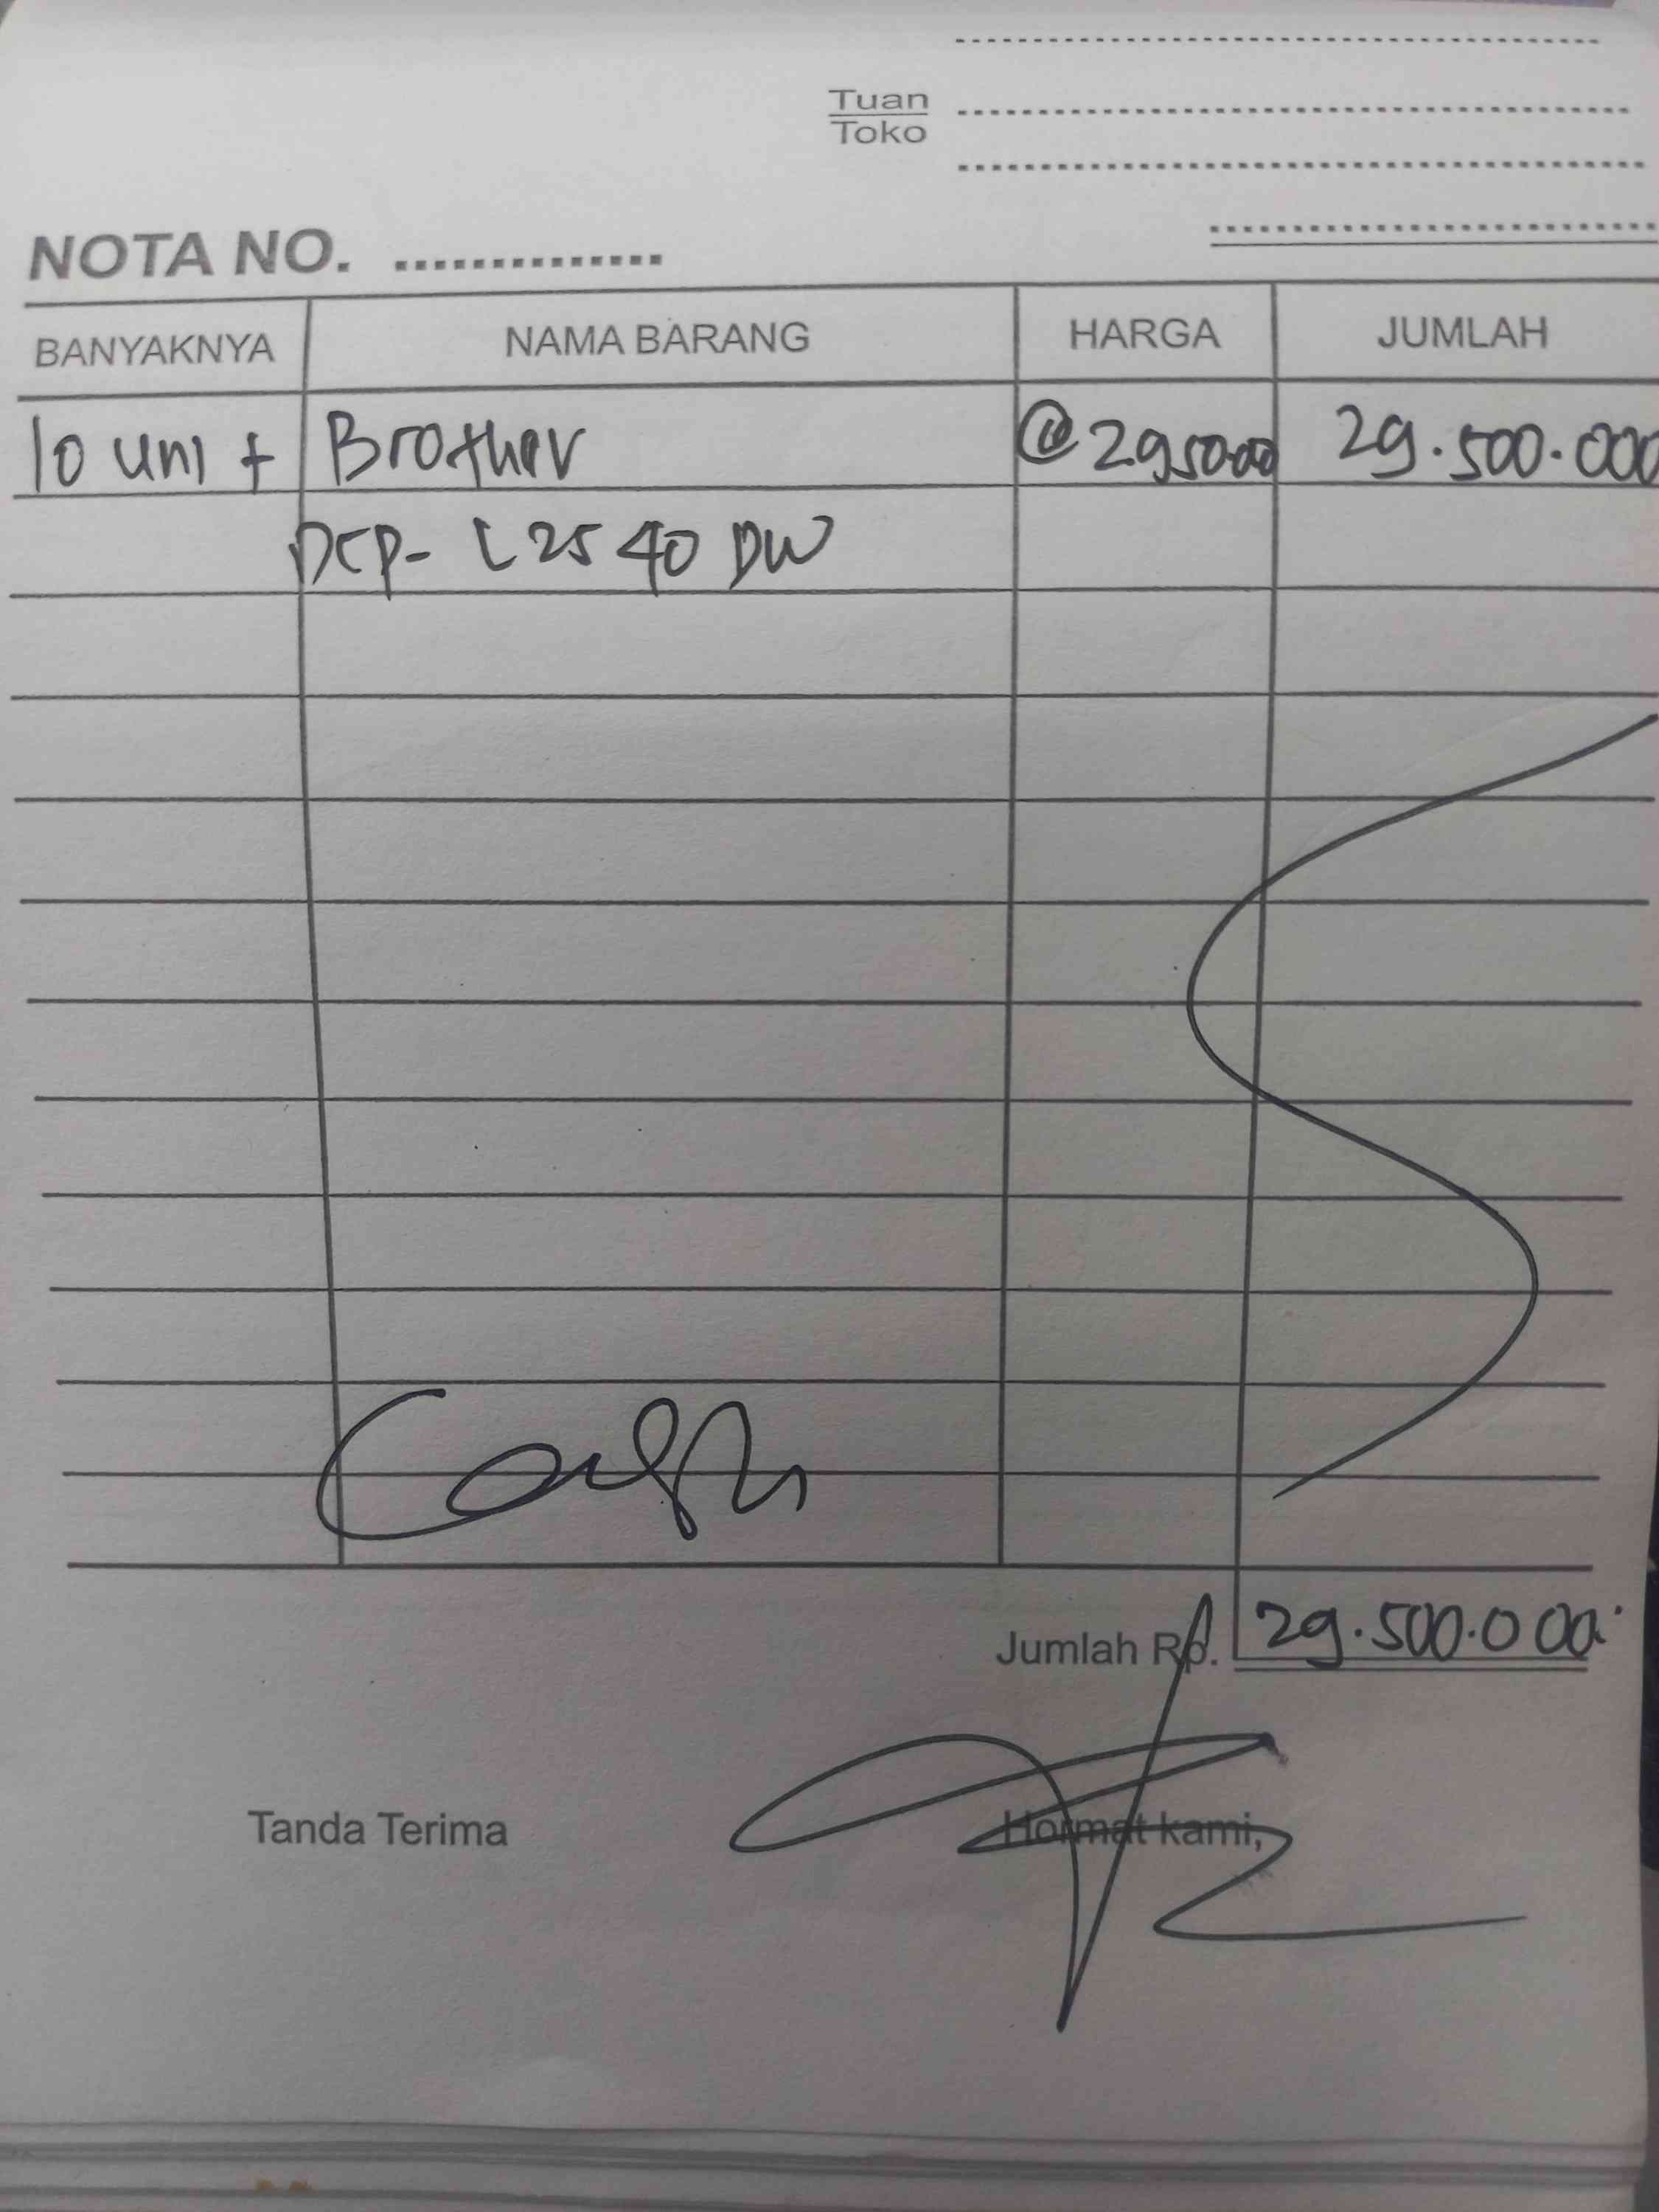 Tuan
Toko
NOTA NO. ..............
BANYAKNYA NAMA BARANG HARGA JUMLAH
10 unit Brother @ 2950000 29.500.000
DCP- L2540 DW
Cash
Jumlah Rp. 29.500.000
Tanda Terima Hormat kami,